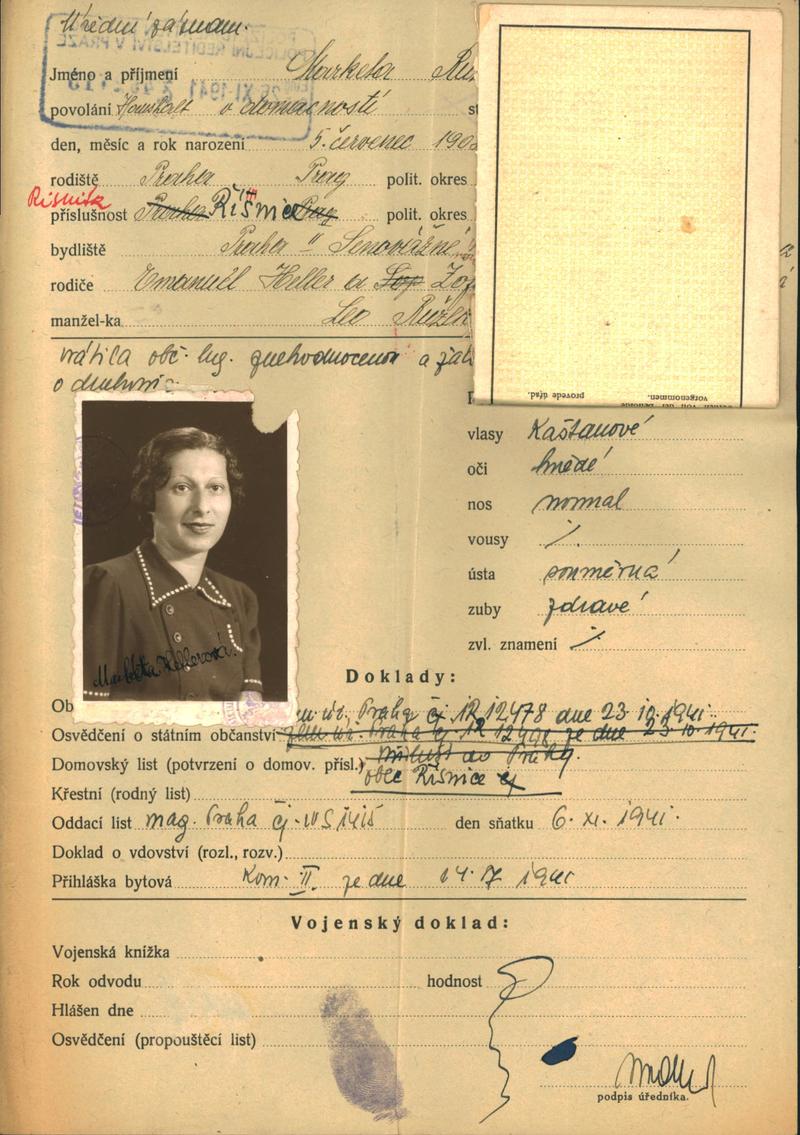 Úřední záznam.
Jméno a příjmení Marketa
povolání Haushalt v domácnosti
den, měsíc a rok narození 5. červenec
rodiště Praha Prag polit. okres
Řisnitz
příslušnost Praha Řišnice Prag polit. okres
bydliště Praha II Senovážné
rodiče Emanuel Heller a
manžel-ka Leo
vrátila obč. leg. znehodnocenou a
o
provede úřad. vorgenommen.
vlasy Kaštanové
oči hnědé
nos normal
vousy ⁒
ústa souměrná
zuby zdravé
zvl. znamení ⁒
Markéta Hellerová.
Doklady:
Praha čj 12 12478 dne 23.10.1941.
Osvědčení o státním občanství Praha čj. 12 ze dne 23.10.1941.
Domovský list (potvrzení o domov. přísl.) do Prahy.
obec Řisnice čj
Křestní (rodný list)
Oddací list mag. Praha čj. den sňatku 6. XI. 1941.
Doklad o vdovství (rozl., rozv.)
Přihláška bytová Kom. II. ze dne 1941
Vojenský doklad:
Vojenská knížka
Rok odvodu hodnost
Hlášen dne
Osvědčení (propouštěcí list)
podpis úředníka.